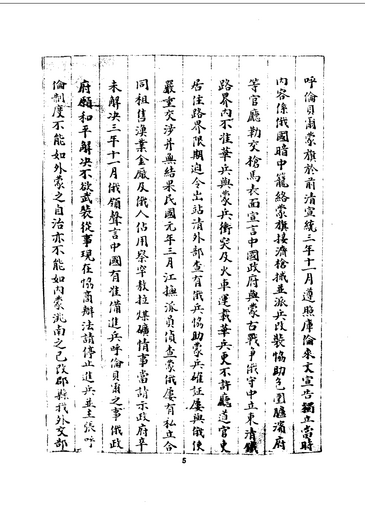 呼倫貝爾蒙旗於前清宣統三年十一月遵照庫倫來文宣告獨立當時
內容係俄國暗中籠絡蒙旗接濟槍械並派兵改裝協助包圍臚濱府
等官廳勒交槍馬表面宣言中國政府與蒙古戰爭俄守中立東清鐵
路界內不准華兵與蒙兵衝突及火車運載華兵更不許廳道官吏
居住路界限期迫令出站清外部查有俄兵協助蒙兵確証屢與俄使
嚴重交涉幷無結果民國元年三月江撫派員偵查蒙俄屢有私立合
同租售漠業金廠及俄人佔用察罕敖拉煤礦情事當請示政府卒
未解決三年十一月俄領聲言中國有准備進兵呼倫貝爾之事俄政
府願和平解决不欲武裝從事現在協商辦法請停止進兵並主張呼
倫制度不能如外蒙之自治亦不能如內蒙洮南之已改郡縣我外交部
5